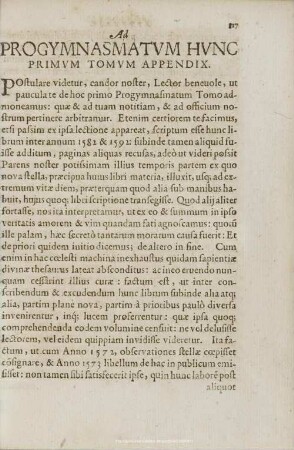 817
Ad
PROGYMNASMATVM HVNC
PRIMVM TOMVM APPENDIX.
POstulare videtur, candor noster, Lector beneuole, ut
paucula te de hoc primo Progymnasmatum Tomo ad-
moneamus: quæ & ad tuam notitiam, & ad officium no-
strum pertinere arbitramur. Etenim certiorem te facimus,
etsi passim ex ipsa lectione appareat, scriptum esse hunc li-
brum inter annum 1582 & 1592: subinde tamen aliquid fu-
isse additum, paginas aliquas recusas, adeò ut videri possit
Parens noster potissimam illius temporis partem ex quo
nova stella, præcipua hujus libri materia, illuxit, usq; ad ex-
tremum vitæ diem, præterquam quod alia sub manibus ha-
buit, hujus quoq; libri scriptione transegisse. Quod alij aliter
fortasse, nos ita interpretamur, ut ex eo & summum in ipso
veritatis amorem & vim quandam fati agnoscamus: quod
ille palam, hæc secretò tantarum morarum causa fuerit: Et
de priori quidem initio dicemus; de altero in fine. Cum
enim in hac cœlesti machina inexhaustus quidam sapientiæ
divinæ thesaurus lateat absconditus: ac ineo eruendo nun-
quam cessarint illius curæ: factum est, ut inter con-
scribendum & excudendum hunc librum subinde alia atq;
alia, partim planè nova, partim à prioribus paulò diversa
invenirentur, inq; lucem proferrentur: quæ ipsa quoq;
comprehendenda eodem volumine censuit: ne vel delusisse
lectorem, vel eidem quippiam invidisse videretur. Ita fa-
ctum, ut cum Anno 1572, observationes stellæ cœpisset
cōsignare, & Anno 1573 libellum de hac in publicum emi-
sisset: non tamen sibi satisfecerit ipse, quin hunc laborē post
aliquot